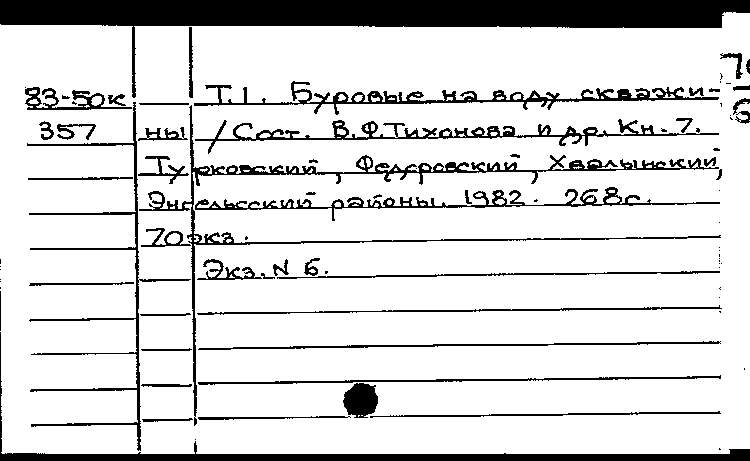 83-50к Т.1. Буровые на воду скважи-
357 ны /Сост. В.Ф.Тихонова и др. Кн. 7.
Турковский, Федоровский, Хвалынский,
Энгельсский районы. 1982. 268с.
70экз.
Экз. N 6.